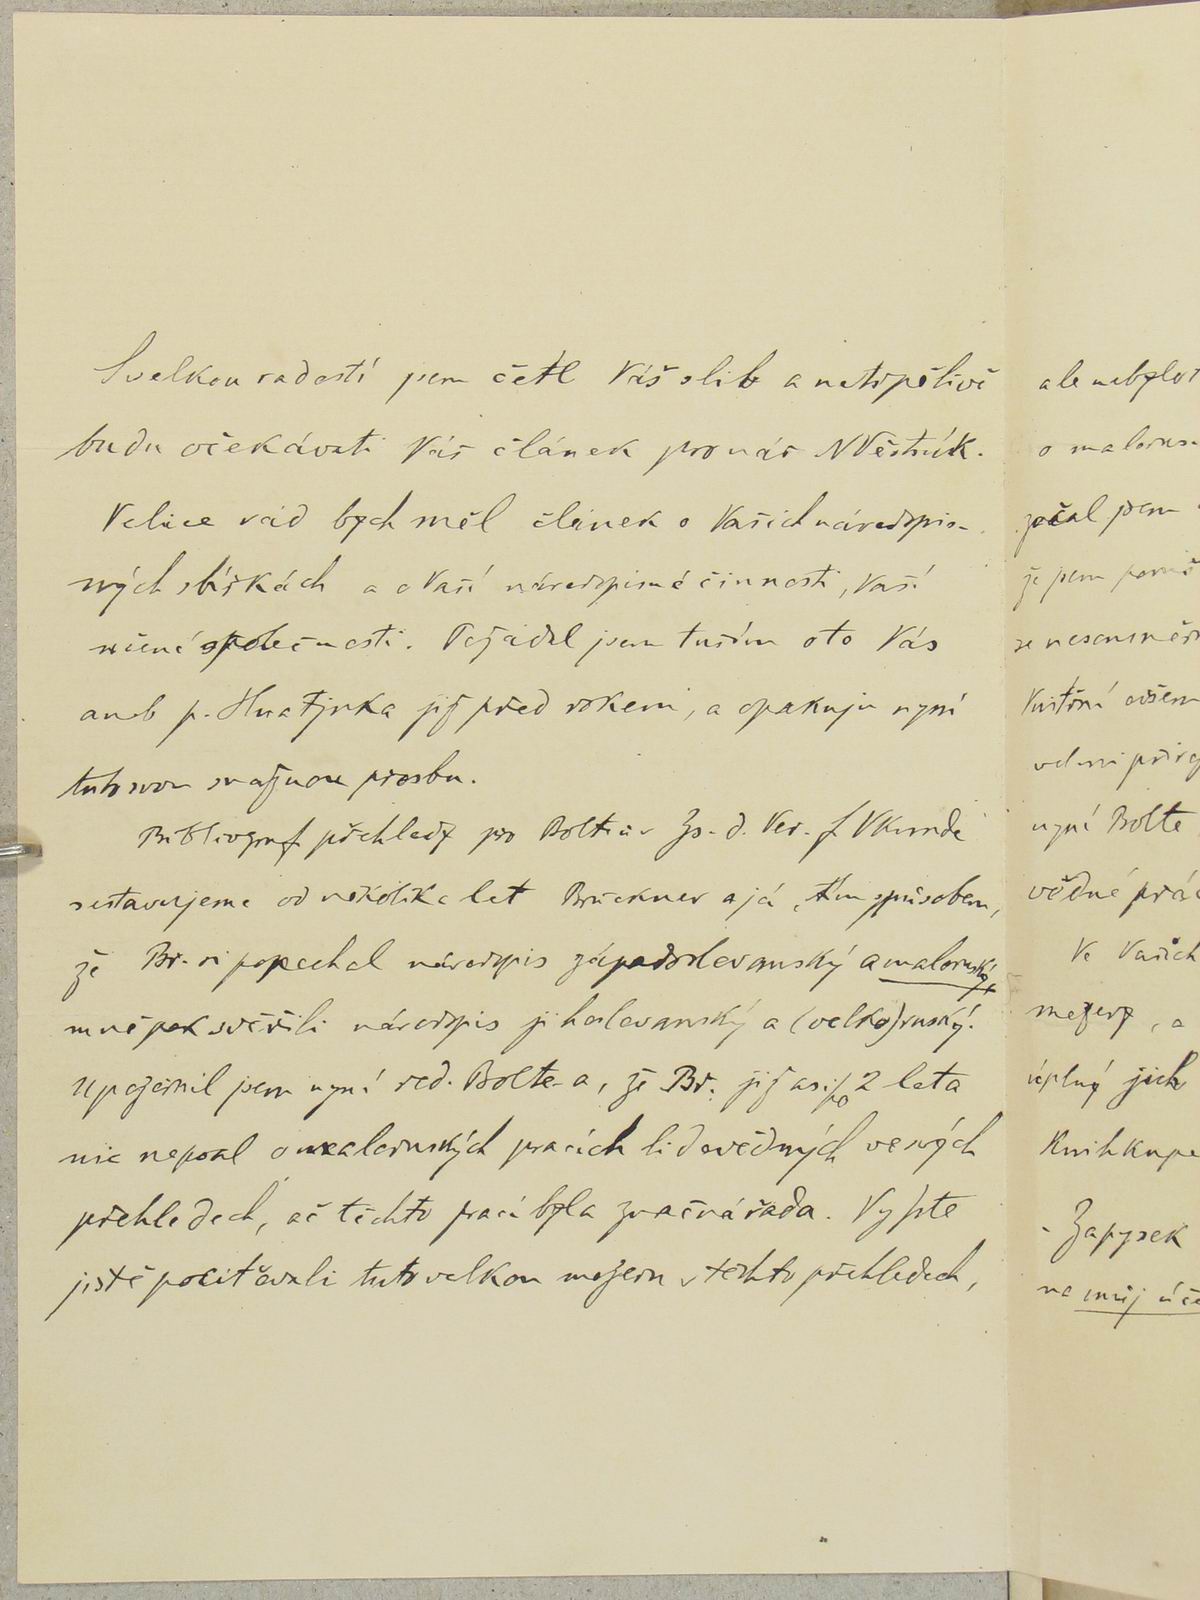 S velkou radostí jsem četl Váš slib a netrpělivě
budu očekávati Váš článek pro náš NVěstník.
Velice rád bych měl článek o Vašich národopis-
ných sbírkách a o Vaší národopisné činnosti, Vaší
učené společnosti. Požádal jsem tuším o to Vás
aneb p. Hnaťjuka již před rokem, a opakuju nyní
tuto svou snažnou prosbu.
Bibliograf. přehledy pro Bolteův Zs. d. Ver. f. VKunde
sestavujeme od několika let Brückner a já, tím způsobem,
že Br. si ponechal národopis západoslovanský a maloruský,
mně pak svěřili národopis jihoslovanský a (velko)ruský.
Upozornil jsem nyní red. Bolte-a, že Br. již asi po 2 leta
nic nepsal o maloruských pracích lidovědných ve svých
přehledech, ač těchto prací byla značná řada. Vy jste
jistě pociťovali tuto velkou mezeru v těchto přehledech,
ale nebylo
o malorus
začal jsem
že jsem
se nesous
Vnitřní ovšem
velmi
nyní Bolte
vědné prác
Ve Vašich
mezery, a
úplný jich
Knihkupe
- Zapysek
na můj úče